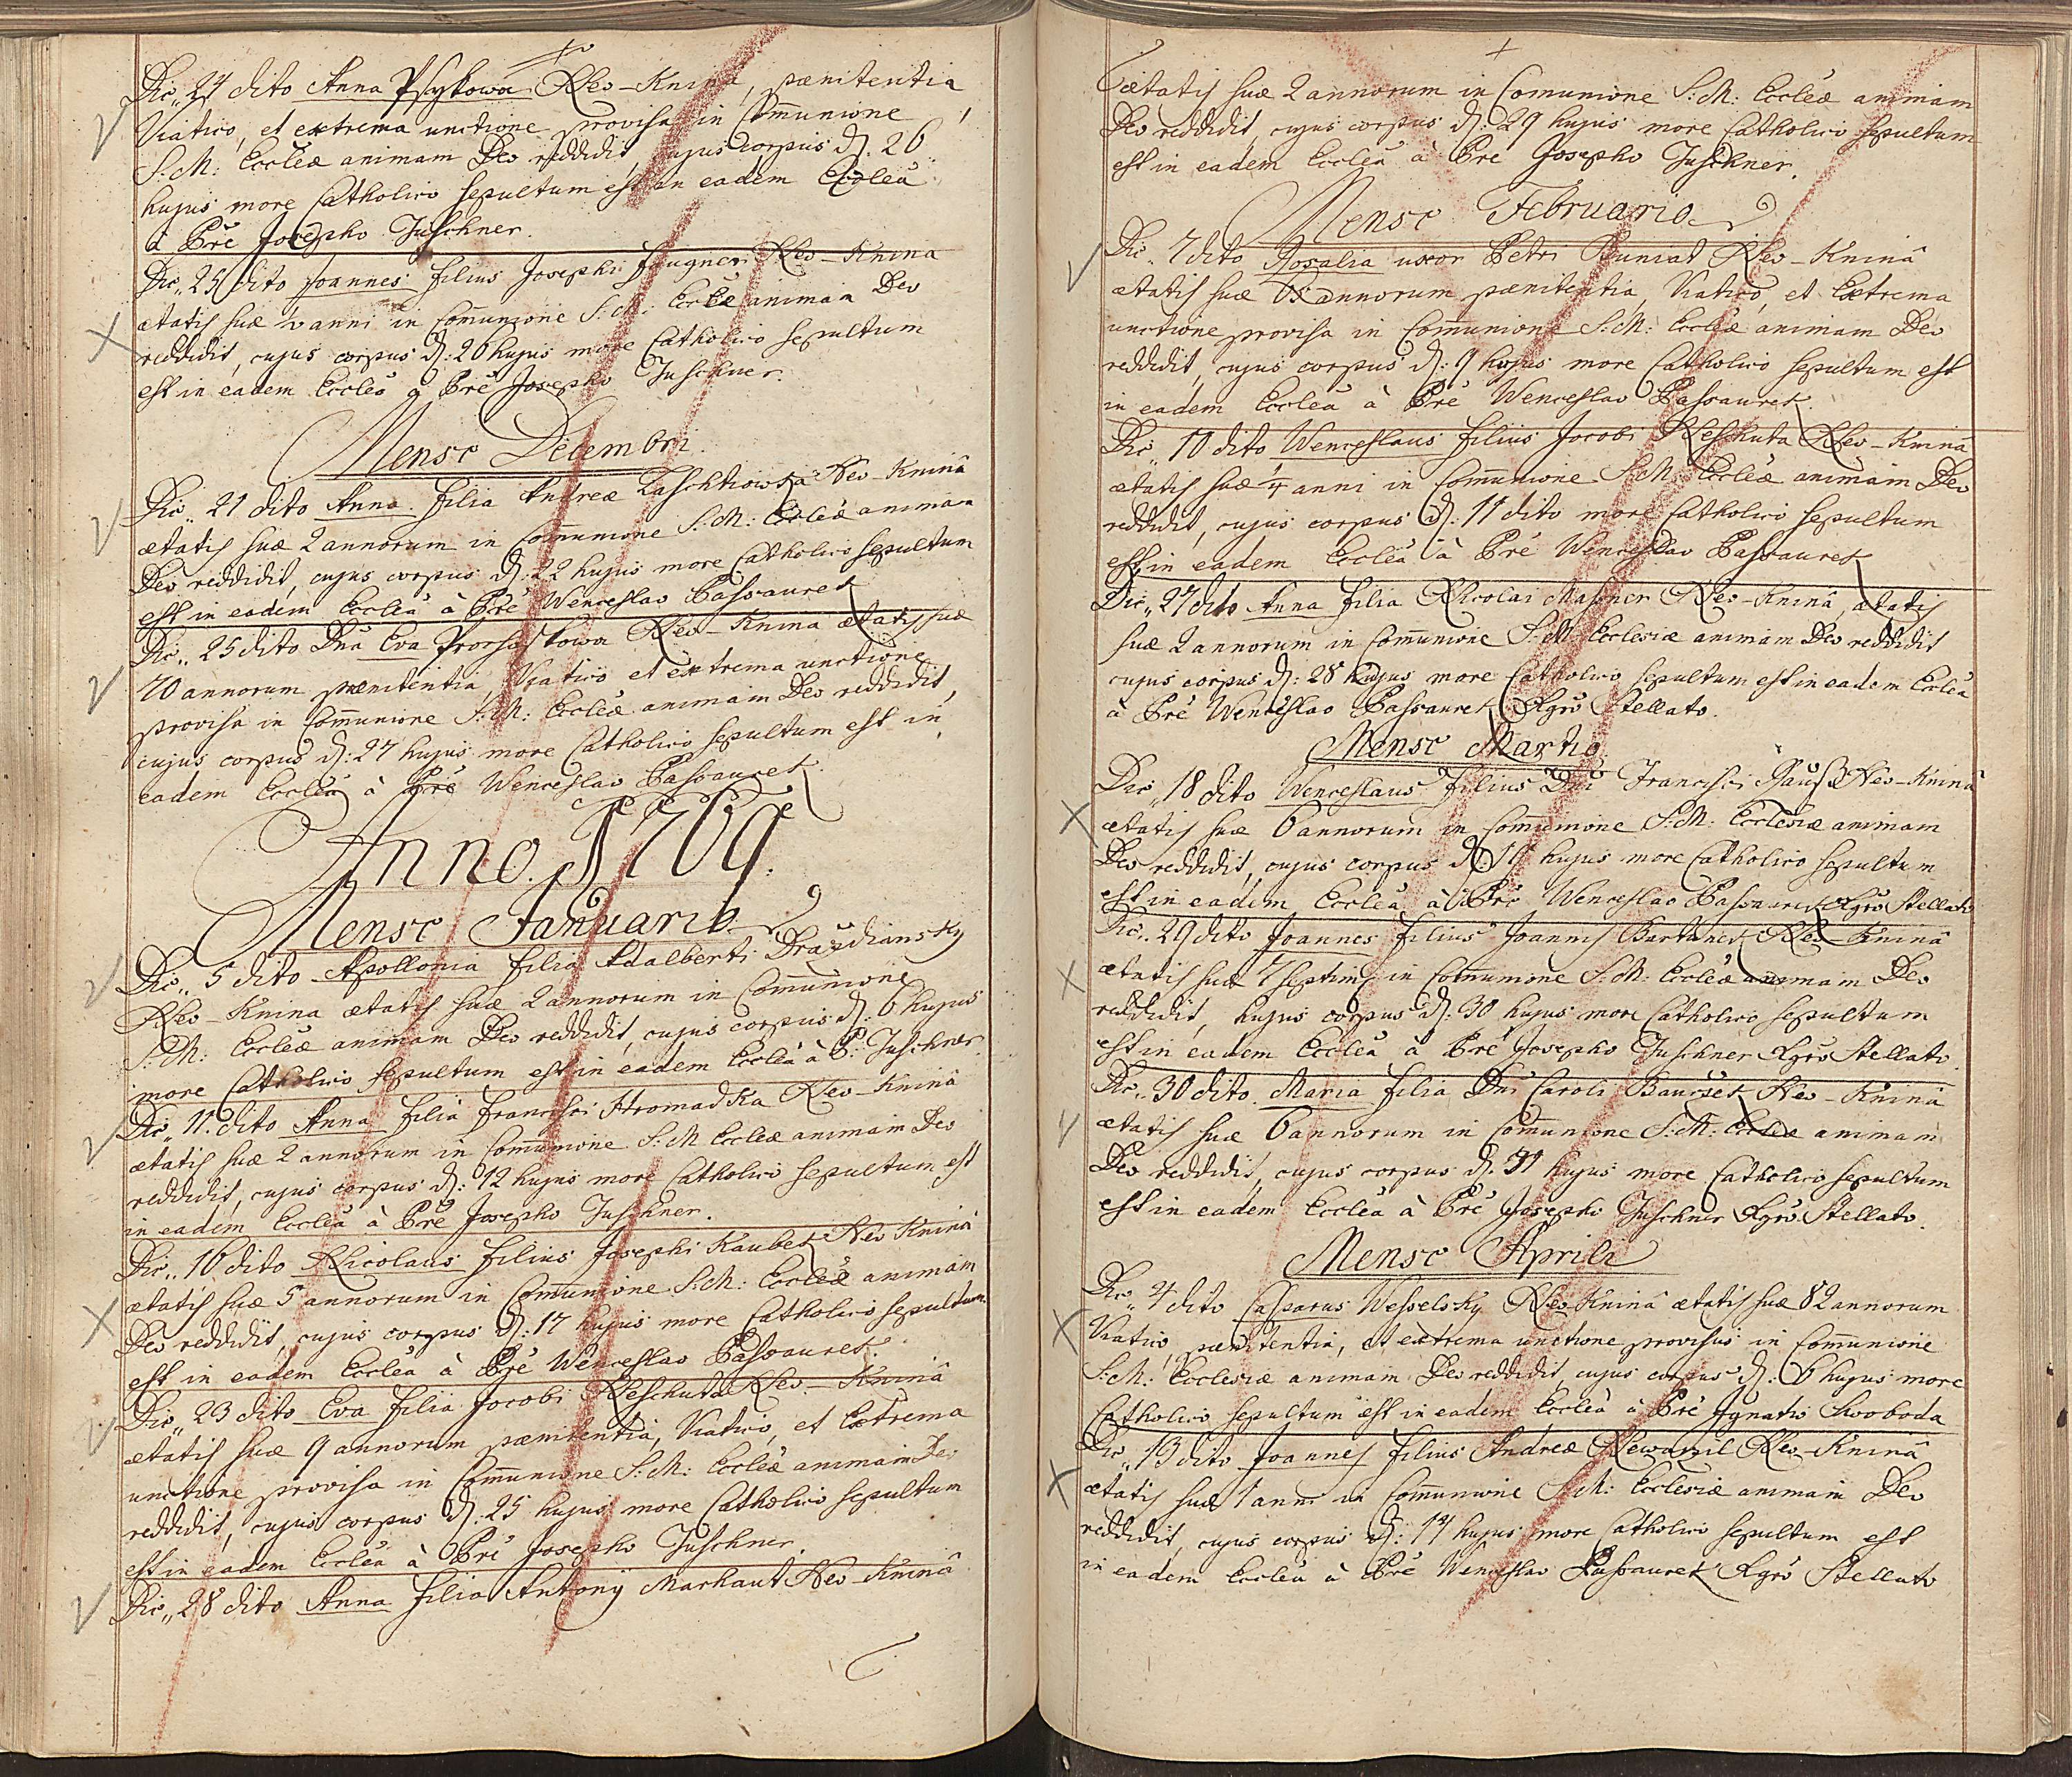 Die 24 dito Anna Psytowa Neo-Knina, pænitentia
Viatico, et extrema unctione provisa in Com̄unione
S: M: Eccleæ animam Deo reddidit, cujus corpus d: 26
hujus more Catholico sepultum est in eadem Eccleâ
à Pre Josepho Juschner.
Die 25 dito Joannes filius Josephi Neo-Kninâ
ætatis suæ anni in Com̄unione S: M: Eccleæ animam Deo
reddidit, cujus corpus d: 26 hujus more Catholico sepultum
est in eadem Eccleâ à Pre Josepho Juschner.
Mense Decembri.
Die 21 dito Anna filia Andreæ Laschtiowka Neo-Kninâ
ætatis suæ 2 annorum in Com̄unione S: M: Eccleæ animam
Deo reddidit, cujus corpus d: 22 hujus more Catholico sepultum
est in eadem Eccleâ à Pre Wenceslao Passauret
Die 25 dito Dna Eva Neo-Knina ætatis suæ
70 annorum pænitentia, Viatico et extrema unctione
provisa in Com̄unione S: M: Eccleæ animam Deo reddidit,
cujus corpus d: 27 hujus more Catholico sepultum est in
eadem Eccleâ à Pre Wenceslao Passauret.
Anno 1769.
Mense Januario.
Die 5 dito Apollonia filia Adalberti Draždiansky
Neo-Knina ætatis suæ 2 annorum in Com̄unione
S: M: Eccleæ animam Deo reddidit, cujus corpus d: 6 hujus
more Catholico sepultum est in eadem Eccleâ à P: Juschner.
Die 11. dito Anna filia Francisci Hromadka Neo-Kninâ
ætatis suæ 2 annorum in Com̄unione S: M Eccleæ animam Deo
reddidit, cujus corpus d: 12 hujus more Catholico sepultum est
in eadem Eccleâ à Pre Josepho Juschner.
Die 16 dito Nicolaus filius Josephi Kaubek Neo Kninâ
ætatis suæ 5 annorum in Com̄unione S: M: Eccleæ animam
Deo reddidit, cujus corpus d: 17 hujus more Catholico sepultum
est in eadem Eccleâ à Pre Wenceslao Passauret.
Die 23 dito Eva filia Jacobi Neschuta Neo-Kninâ
ætatis suæ 9 annorum pænitentia, Viatico, et Extrema
unctione provisa in Com̄unione S: M: Eccleæ animam Deo
reddidit, cujus corpus d: 25 hujus more Catholico sepultum
est in eadem Eccleâ à Pre Josepho Juschner.
Die 28 dito Anna filia Antonij Marhaut Neo-Kninâ
ætatis suæ 2 annorum in Comunione S: M: Eccleæ animam
Deo reddidit, cujus corpus d: 29 hujus more Catholico sepultum
est in eadem Eccleâ à Pre Josepho Juschner.
Mense Februario
Die 7 dito Rosalia uxor Petri Neo-Kninâ
ætatis suæ annorum pænitentia, Viatico, et Extrema
unctione provisa in Com̄unione S: M: Eccleæ animam Deo
reddidit, cujus corpus d: 9 hujus more Catholico sepultum est
in eadem Eccleâ à Pre Wenceslao Passauret.
Die 10 dito Wenceslaus filius Jacobi Neschuta Neo-Kninâ
ætatis suæ 1/4 anni in Com̄unione S: M: Eccleæ animam Deo
reddidit, cujus corpus d: 11 dito more Catholico sepultum
est in eadem Eccleâ à Pre Wenceslao Passauret
Die 27 dito Anna filia Nicolai Massner Neo-Kninâ, ætatis
suæ 2 annorum in Com̄unione S: M: Ecclesiæ animam Deo reddidit
cujus corpus d: 28 hujus more Catholico sepultum est in eadem Eccleâ
à Pre Wenceslao Passauret Xgro Stellato.
Mense Martio.
Die 18 dito Wenceslaus filius Dni Francisci Neo-Kninâ
ætatis suæ 6 annorum in Com̄unione S: M: Ecclesiæ animam
Deo reddidit, cujus corpus d: 19 hujus more Catholico sepultum
est in eadem Eccleâ à Pre Wenceslao Passauret Xgro Stellato
Die 29 dito Joannes filius Joannis Bartunek Neo-Kninâ
ætatis suæ 7 septim: in Com̄unione S: M: Eccleæ animam Deo
reddidit, hujus corpus d: 30 hujus more Catholico sepultum
est in eadem Eccleâ à Pre Josepho Juschner Xgro Stellato.
Die 30 dito Maria filia Dni Caroli Neo-Kninâ
ætatis suæ 6 annorum in Com̄unione S: M: Eccleæ animam
Deo reddidit, cujus corpus d: 31 hujus more Catholico sepultum
est in eadem Eccleâ à Pre Josepho Juschner Xgro Stellato.
Mense Aprili
Die 4 dito Casparus Wesselsky Neo-Kninâ ætatis suæ 82 annorum
Viatico, pænitentia, et extrema unctione provisus in Com̄unione
S: M: Ecclesiæ animam Deo reddidit, cujus corpus d: 6 hujus more
Catholico sepultum est in eadem Eccleâ à Pre Ignatio Swoboda
Die 13 dito Joannes filius Andreæ Newarzil Neo-Kninâ
ætatis suæ 1 anni in Com̄unione S: M: Ecclesiæ animam Deo
reddidit, cujus corpus d: 14 hujus more Catholico sepultum est
in eadem Eccleâ à Pre Wenceslao Passauret Xgro Stellato